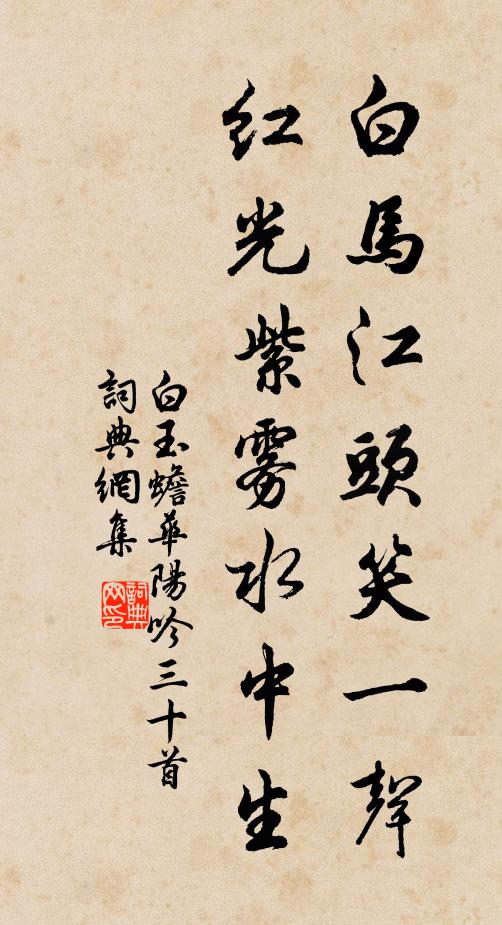 白馬江頭笑一聲
紅光紫雾水中生
白玉蟾華陽吟三十首
詞典網集
詞典网印